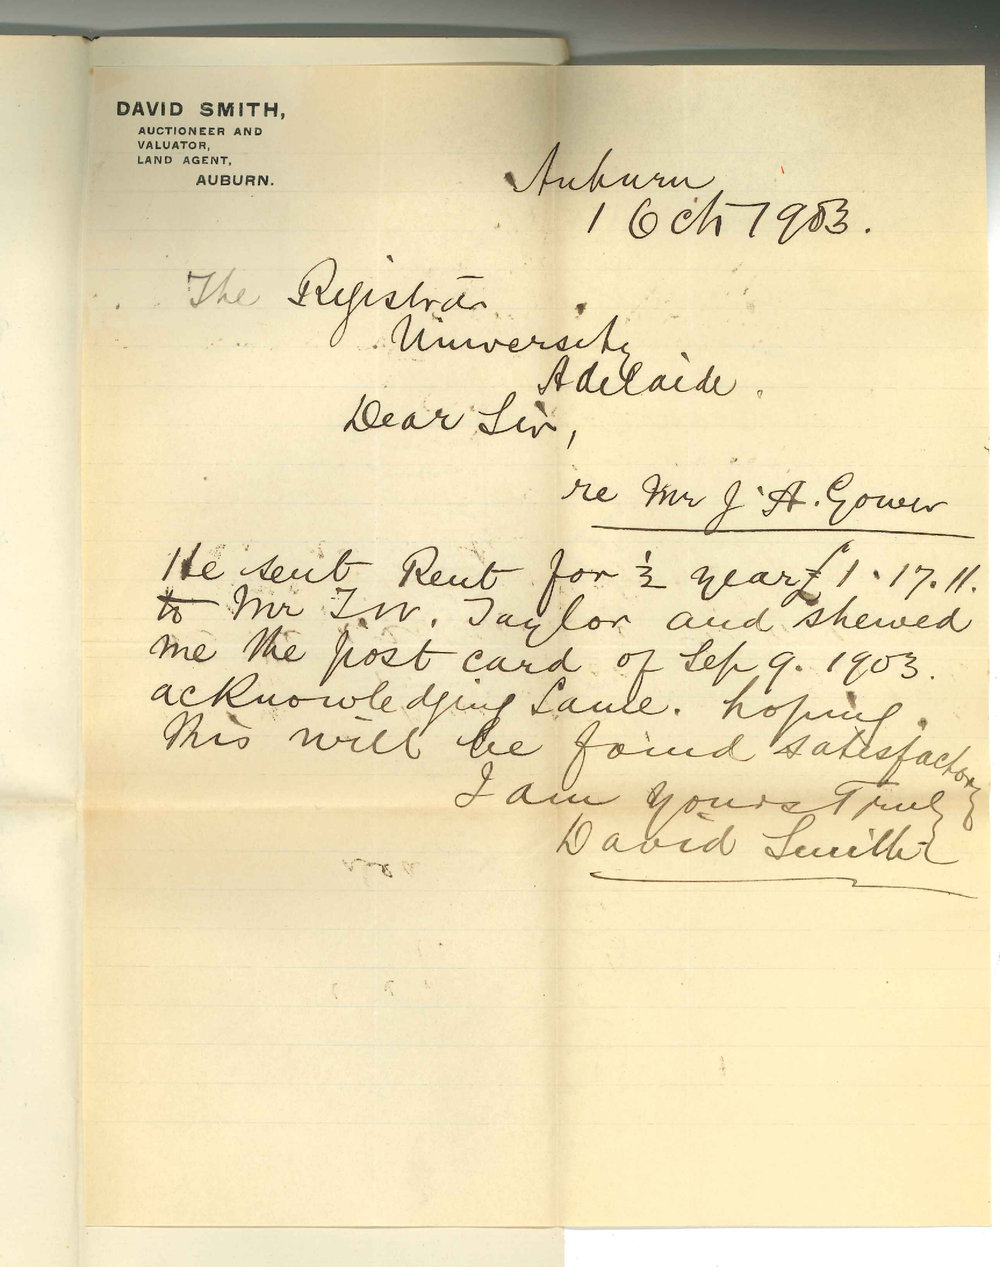 DAVID SMITH,
AUCTIONEER AND
VALUATOR,
LAND AGENT,
AUBURN.
Auburn
1 Oct 1903.
The Registrar
University
Adelaide.
Dear Sir,
re Mr J. A. Gower
He sent Rent for ½ year £1.17.11.
to Mr T.W. Taylor and shewed
me the post card of Sep 9. 1903.
acknowledging same. hoping
this will be found satisfactory
I am Yours Truly
David Smith